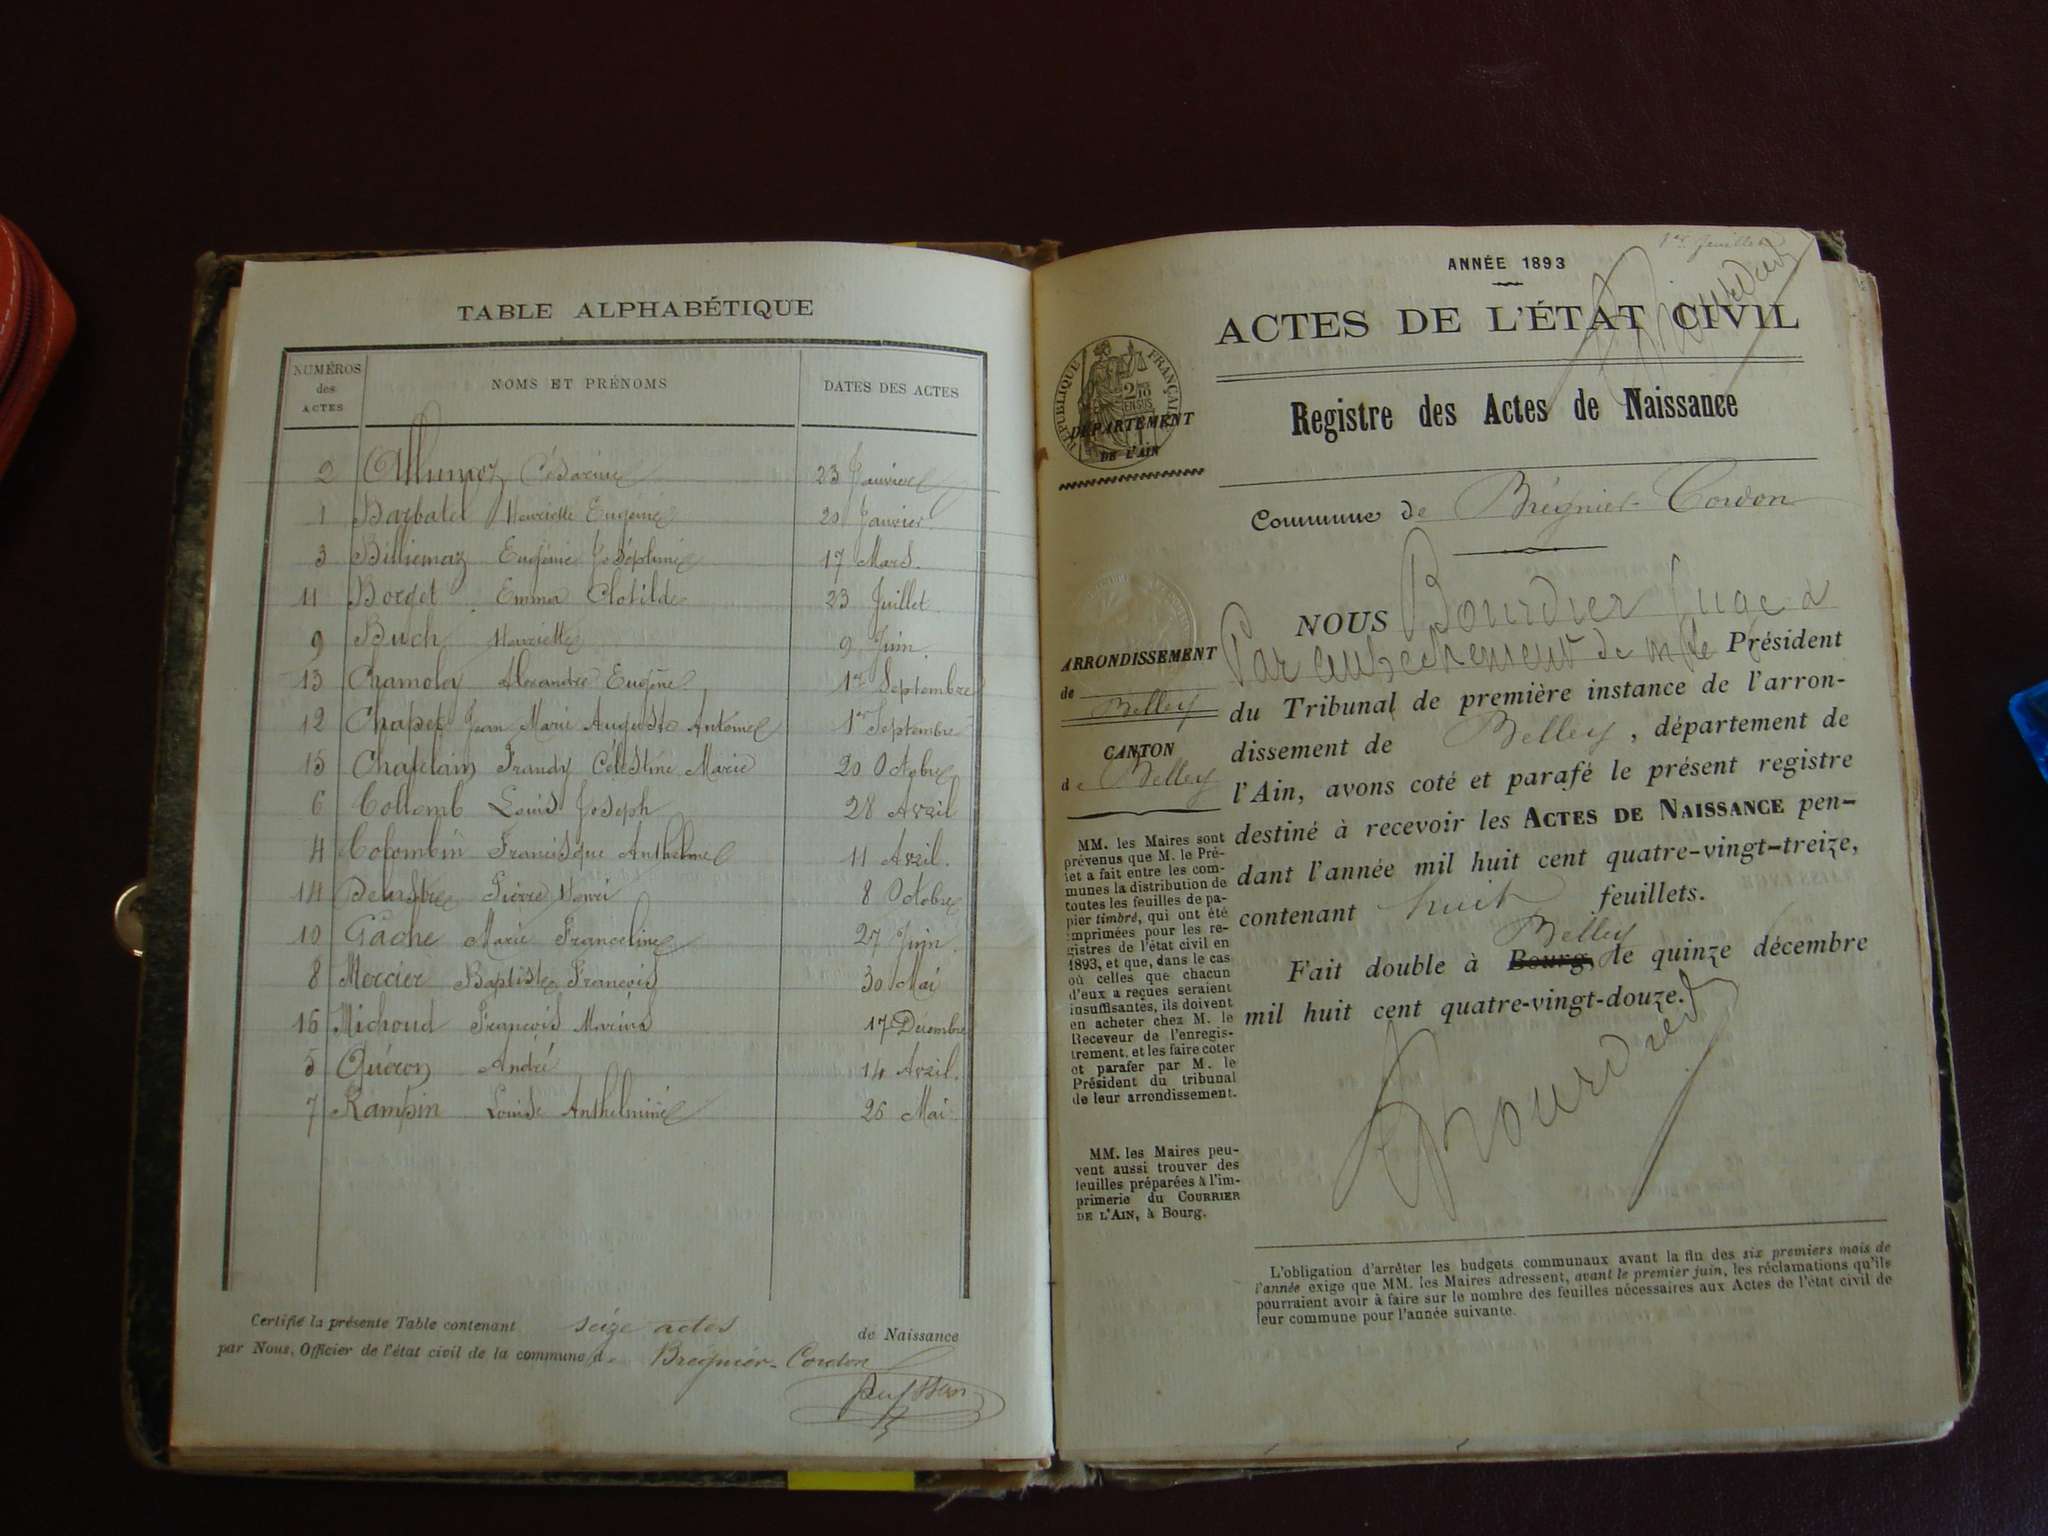 TABLE ALPHABÉTIQUE
NUMÉROS des ACTES NOMS ET PRÉNOMS DATES DES ACTES
2 Allumoz Césarine 23 Janvier
1 Barbatel Henriette Eugénie 20 Janvier
3 Billiemaz Eugénie Joséphine 17 Mars.
11 Borget Emma Clotilde 23 Juillet
9 Buch Henriette 9 Juin.
13 Alexandre Eugène 1er Septembre
12 Chapet Jean Marie Auguste Antoine 1er Septembre
15 Chatelain Célestine Marie 20 Octobre
6 Collomb Louis Joseph 28 Avril
4 Colombin Francisque Anthelme 11 Avril.
14 Pierre Henri 8 Octobre
10 Gache Marie Franceline 27 Juin.
8 Mercier Baptiste François 30 Mai
16 Michoud François Marius 17 Décembre
5 Quéron André 14 Avril.
7 Rampin Louise Anthelmine 26 Mai
Certifié la présente Table contenant seize actes de Naissance
par Nous, Officier de l'état civil de la commune d. Brégnier-Cordon
1er feuillet
ANNÉE 1893
ACTES DE L'ÉTAT CIVIL
RÉPUBLIQUE FRANÇAISE
2/10 EN SUS
DÉPARTEMENT
DE L'AIN
Registre des Actes de Naissance
Commune de Brégnier-Cordon
NOUS Bourdier Juge
Par empechement de Président
du Tribunal de première instance de l'arron-
dissement de Belley, département de
l'Ain, avons coté et parafé le présent registre
destiné à recevoir les ACTES DE NAISSANCE pen-
dant l'année mil huit cent quatre-vingt-treize,
contenant huit feuillets.
Belley
Fait double à Bourg, le quinze décembre
mil huit cent quatre-vingt-douze.
Bourdier
ARRONDISSEMENT
de Belley
CANTON
de Belley
MM. les Maires sont
prévenus que M. le Pré-
fet a fait entre les com-
munes la distribution de
toutes les feuilles de pa-
pier timbré, qui ont été
imprimées pour les re-
gistres de l'état civil en
1893, et que, dans le cas
où celles que chacun
d'eux a reçues seraient
insuffisantes, ils doivent
en acheter chez M. le
Receveur de l'enregis-
trement, et les faire coter
et parafer par M. le
Président du tribunal
de leur arrondissement.
MM. les Maires peu-
vent aussi trouver des
feuilles préparées à l'im-
primerie du COURRIER
DE L'AIN, à Bourg.
L'obligation d'arrêter les budgets communaux avant la fin des six premiers mois de
l'année exige que MM. les Maires adressent, avant le premier juin, les réclamations qu'ils
pourraient avoir à faire sur le nombre des feuilles nécessaires aux Actes de l'état civil de
leur commune pour l'année suivante.